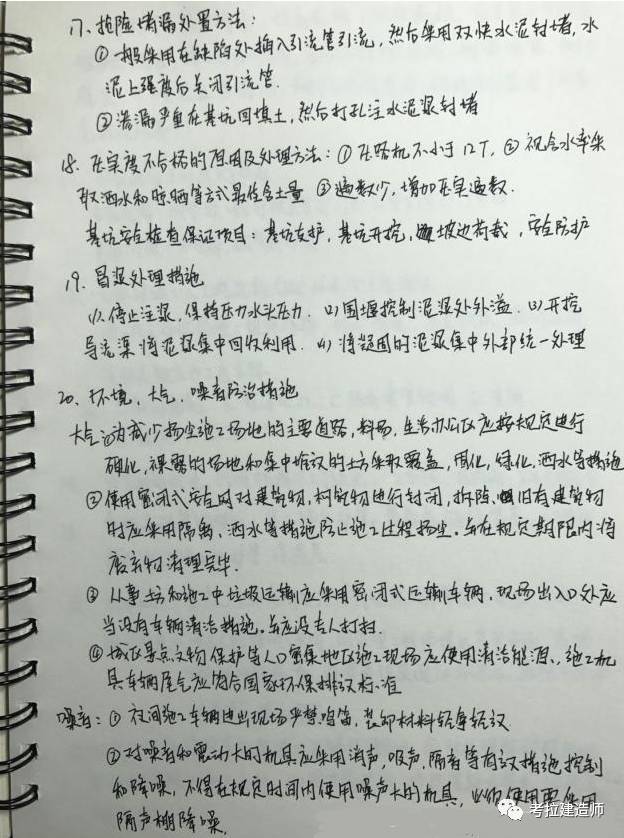 17、抢险堵漏处置方法：
① 一般采用在缺陷处插入引流管引流，然后采用双快水泥封堵，水
泥上强度后关闭引流管.
② 渗漏严重在基坑回填土，然后打孔注水泥浆封堵
18、压实度不合格的原因及处理方法：① 压路机不小于12T，② 视含水率采
取洒水和晾晒等方式最佳含水量 ③ 遍数少，增加压实遍数.
基坑安全检查保证项目：基坑支护，基坑开挖，坡边荷载，安全防护
19、冒浆处理措施
(1)、停止注浆，保持压力水头压力. (2) 围堰控制泥浆处外溢. (3) 开挖
导流渠将泥浆集中回收利用. (4) 将凝固的泥浆集中外部统一处理
20、环境、大气、噪音防治措施
大气：① 为减少扬尘施工场地的主要道路，料场，生活办公区应按规定进行
硬化，裸露的场地和集中堆放的土方采取覆盖，固化，绿化，洒水等措施
② 使用密闭式安全网对建筑物，构筑物进行封闭，拆除旧有建筑物
时应采用隔离，洒水等措施防止施工过程扬尘. 并在规定期限内将
废弃物清理完毕.
③ 从事土方和施工中垃圾运输应采用密闭式运输车辆，现场出入口处应
当设有车辆清洁措施. 并应设专人打扫.
④ 城区景点文物保护等人口密集地区施工现场应使用清洁能源，施工机
具车辆尾气应符合国家环保排放标准
噪音：① 夜间施工车辆进出现场严禁鸣笛，装卸材料轻拿轻放
② 对噪音和震动大的机具应采用消声，吸声，隔音等有效措施控制
和降噪，不得在规定时间内使用噪声大的机具，必须使用要采用
隔声棚降噪.
考拉建造师